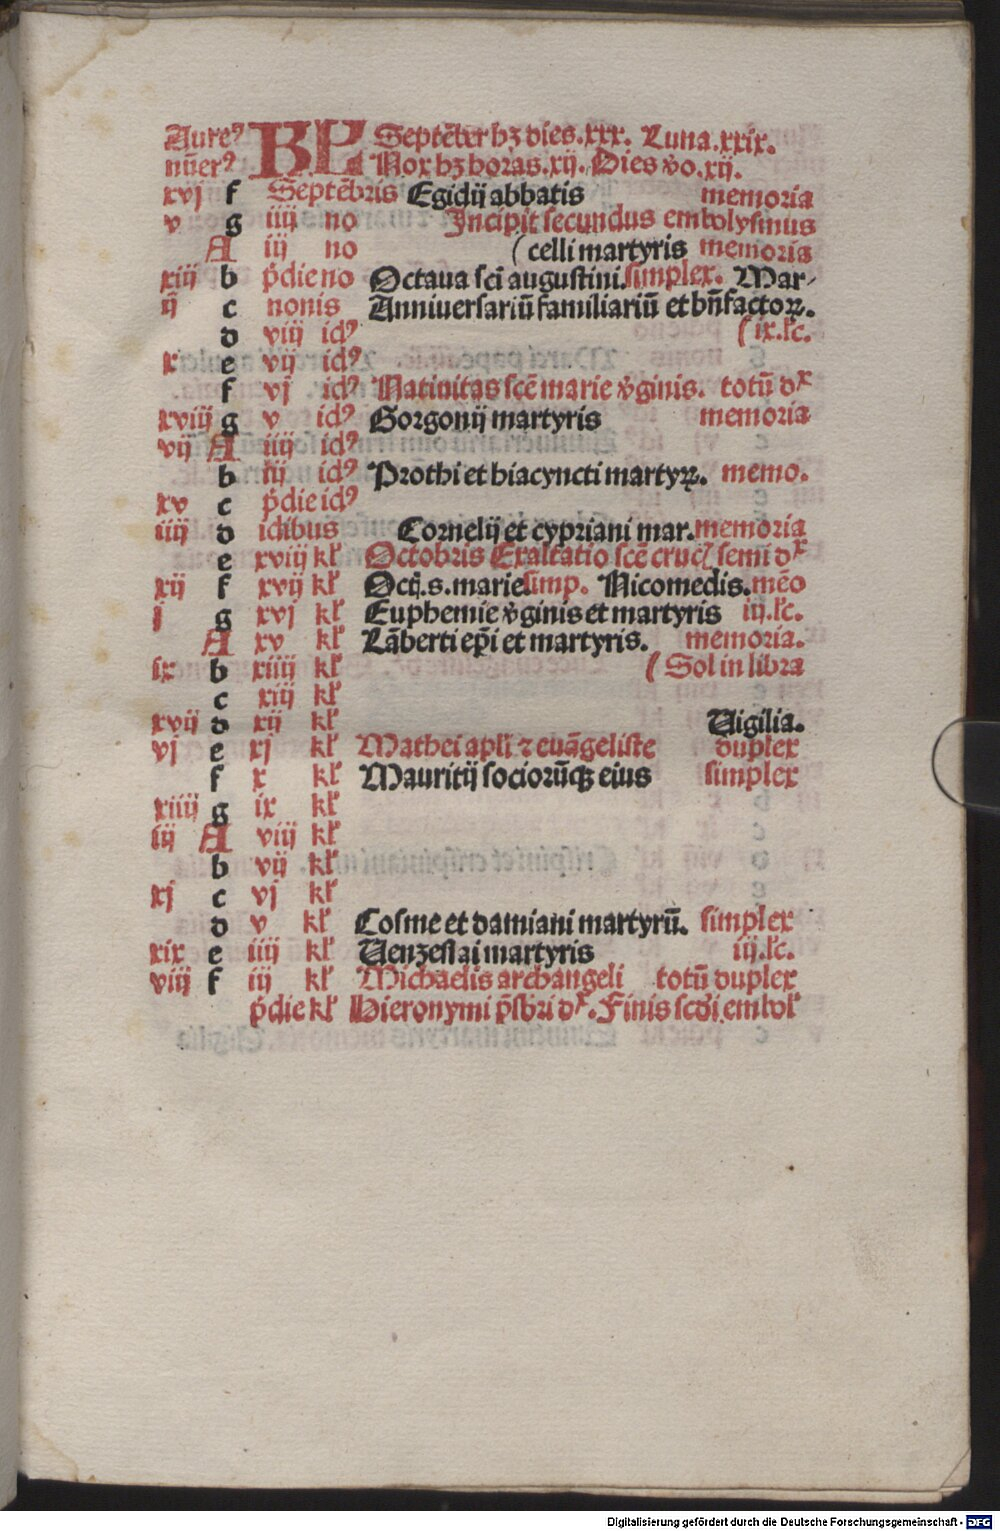 Aureꝰ KL Septēber hꝫ dies.xxx. Luna.xxix.
nūerꝰ Nox hꝫ horas.xij. Dies v̄o.xij.
xvj f Septēbris Egidij abbatis memoria
v g iiij no Incipit secundus embolysmus
A iij no (celli martyris memoria
xiij b p̄die no Octaua sc̄i augustini.simplex. Mar⸗
ij c nonis Anniuersariū familiariū et bn̄factoꝝ.
d viij idꝰ (ix.lc̄.
x e vij idꝰ
f vj idꝰ Natiuitas sc̄e marie v̄ginis. totū dx
xviij g v idꝰ Gorgonij martyris memoria
vij A iiij idꝰ
b iij idꝰ Prothi et hiacyncti martyꝝ. memo.
xv c p̄die idꝰ
iiij d idibus Cornelij et cypriani mar.memoria
e xviij kł Octobris Exaltatio sc̄e crucꝭ semi dx
xij f xvij kł Octꝭ.s.marie simp. Nicomedis.mēo
j g xvj kł Euphemie v̄ginis et martyris iij.lc̄.
A xv kł Lāberti ep̄i et martyris. memoria.
ix b xiiij kł (Sol in libra
c xiij kł
xvij d xij kł Uigilia.
vj e xj kł Mathei apłi ⁊ euāgeliste duplex
f x kł Mauritij sociorūqꝫ eius simplex
xiiij g ix kł
iij A viij kł
b vij kł
xj c vj kł
d v kł Cosme et damiani martyrū. simplex
xix e iiij kł Uenzeslai martyris iij.lc̄.
viij f iij kł Michaelis archangeli totū duplex
p̄die kł Hieronymi p̄sbri dx. Finis scd̄i embol̄
Digitalisierung gefördert durch die Deutsche Forschungsgemeinschaft - DFG